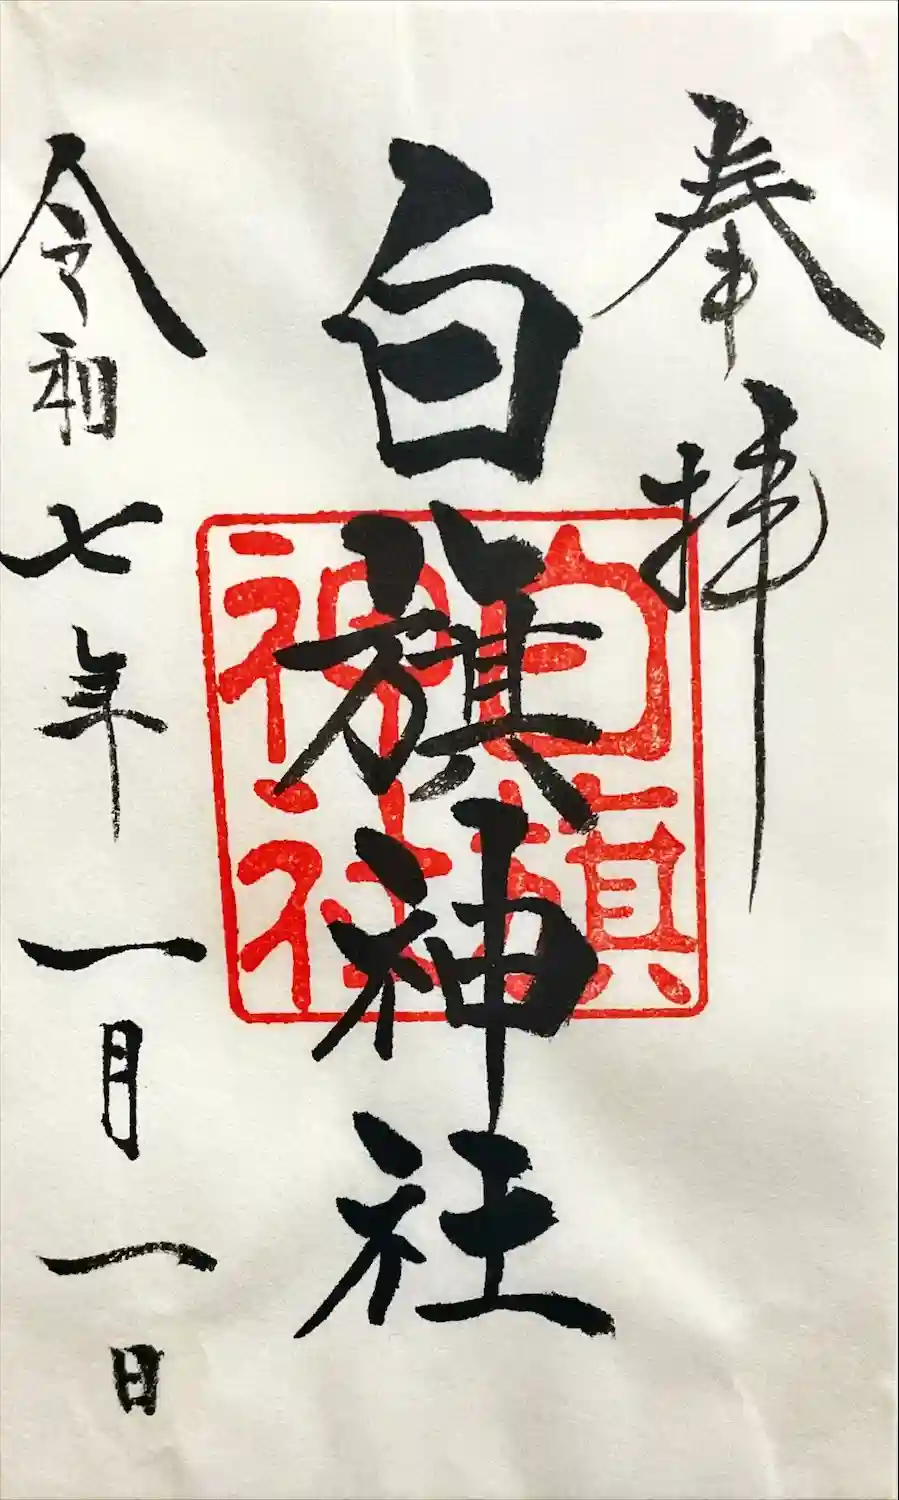 奉拝
白旗神社
白旗
神社
令和七年一月一日